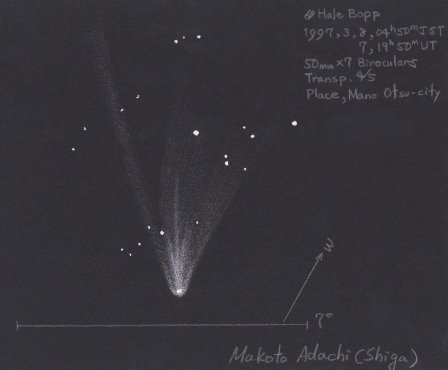 # Hale Bopp
1997, 3, 8, 04ʰ50ᵐJST
7, 19ʰ50ᵐUT
50mm×7 Binoculars
Transp. 4/5
Place, Mano Otsu-city
W
7°
Makoto Adachi (Shiga)